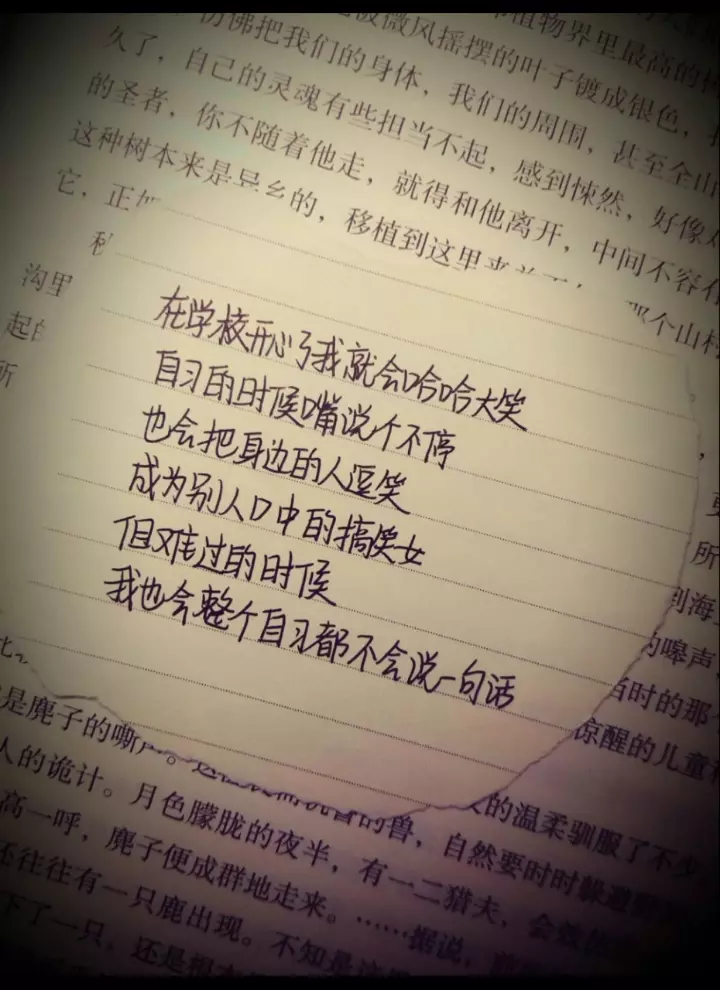 仿佛把我们的身体，我们的周围，甚至全山
微风摇摆的叶子镀成银色，
植物界里最高的
久了，自己的灵魂有些担当不起，感到悚然，好像
的圣者，你不随着他走，就得和他离开，中间不容
这种树本来是异乡的，移植到这里来
它，正如
那个山村
沟里
起
所
在学校开心了我就会哈哈大笑
自习的时候嘴说个不停
也会把身边的人逗笑
成为别人口中的搞笑女
但难过的时候
我也会整个自习都不会说一句话
所
到海
的嗥声
当时的那
惊醒的儿童
是麂子的嘶声。
的兽，自然要时时躲避
的温柔驯服了不少
人的诡计。月色朦胧的夜半，有一二猎夫，会效
高一呼，麂子便成群地走来。……据说，前
还往往有一只鹿出现。不知是
下了一只，还是根本